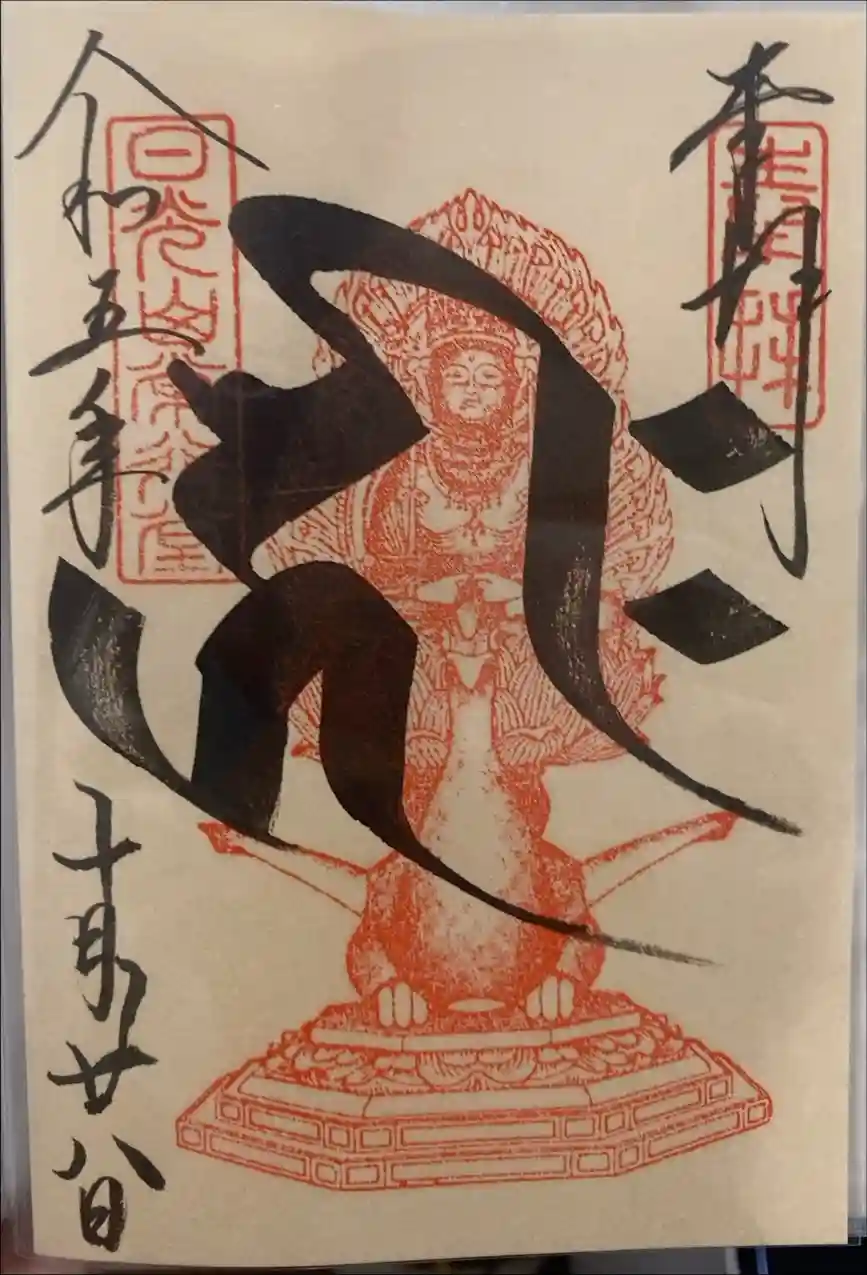 奉拝
𑖮𑖿𑖨𑖱𑖾
日光山常行堂
令和五年
十月廿八日